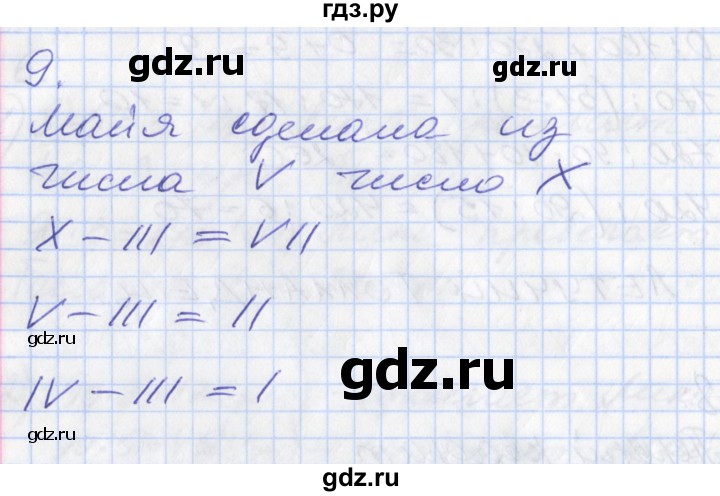 гдз.ру
9.
gdz.ru
gdz.ru
Майя сделала из
числа V число X
X – III = VII
V – III = II
gdz.ru
gdz.ru
IV – III = I
gdz.ru
gdz.ru